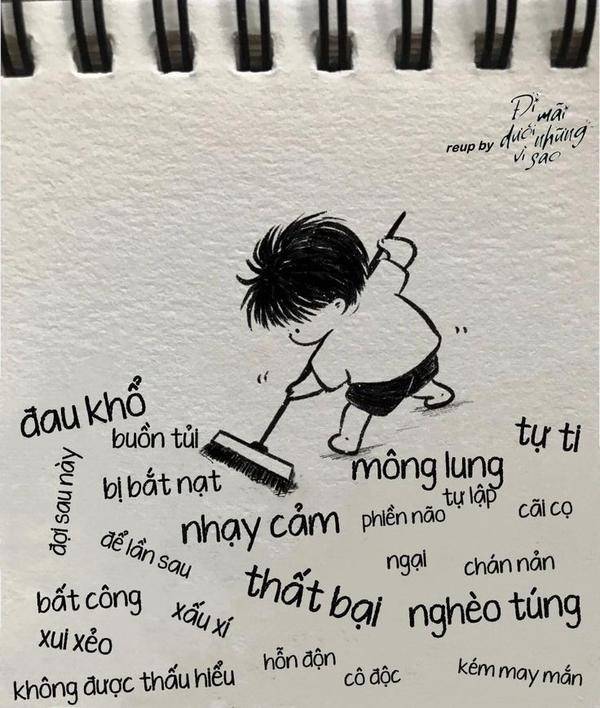 Đi mãi
reup by dưới những
vì sao
đau khổ
buồn tủi
tự ti
đợi sau này
bị bắt nạt
mông lung
tự lập
nhạy cảm
phiền não
cãi cọ
để lần sau
ngại
chán nản
bất công
xấu xí
thất bại
nghèo túng
xui xẻo
không được thấu hiểu
hỗn độn
cô độc
kém may mắn